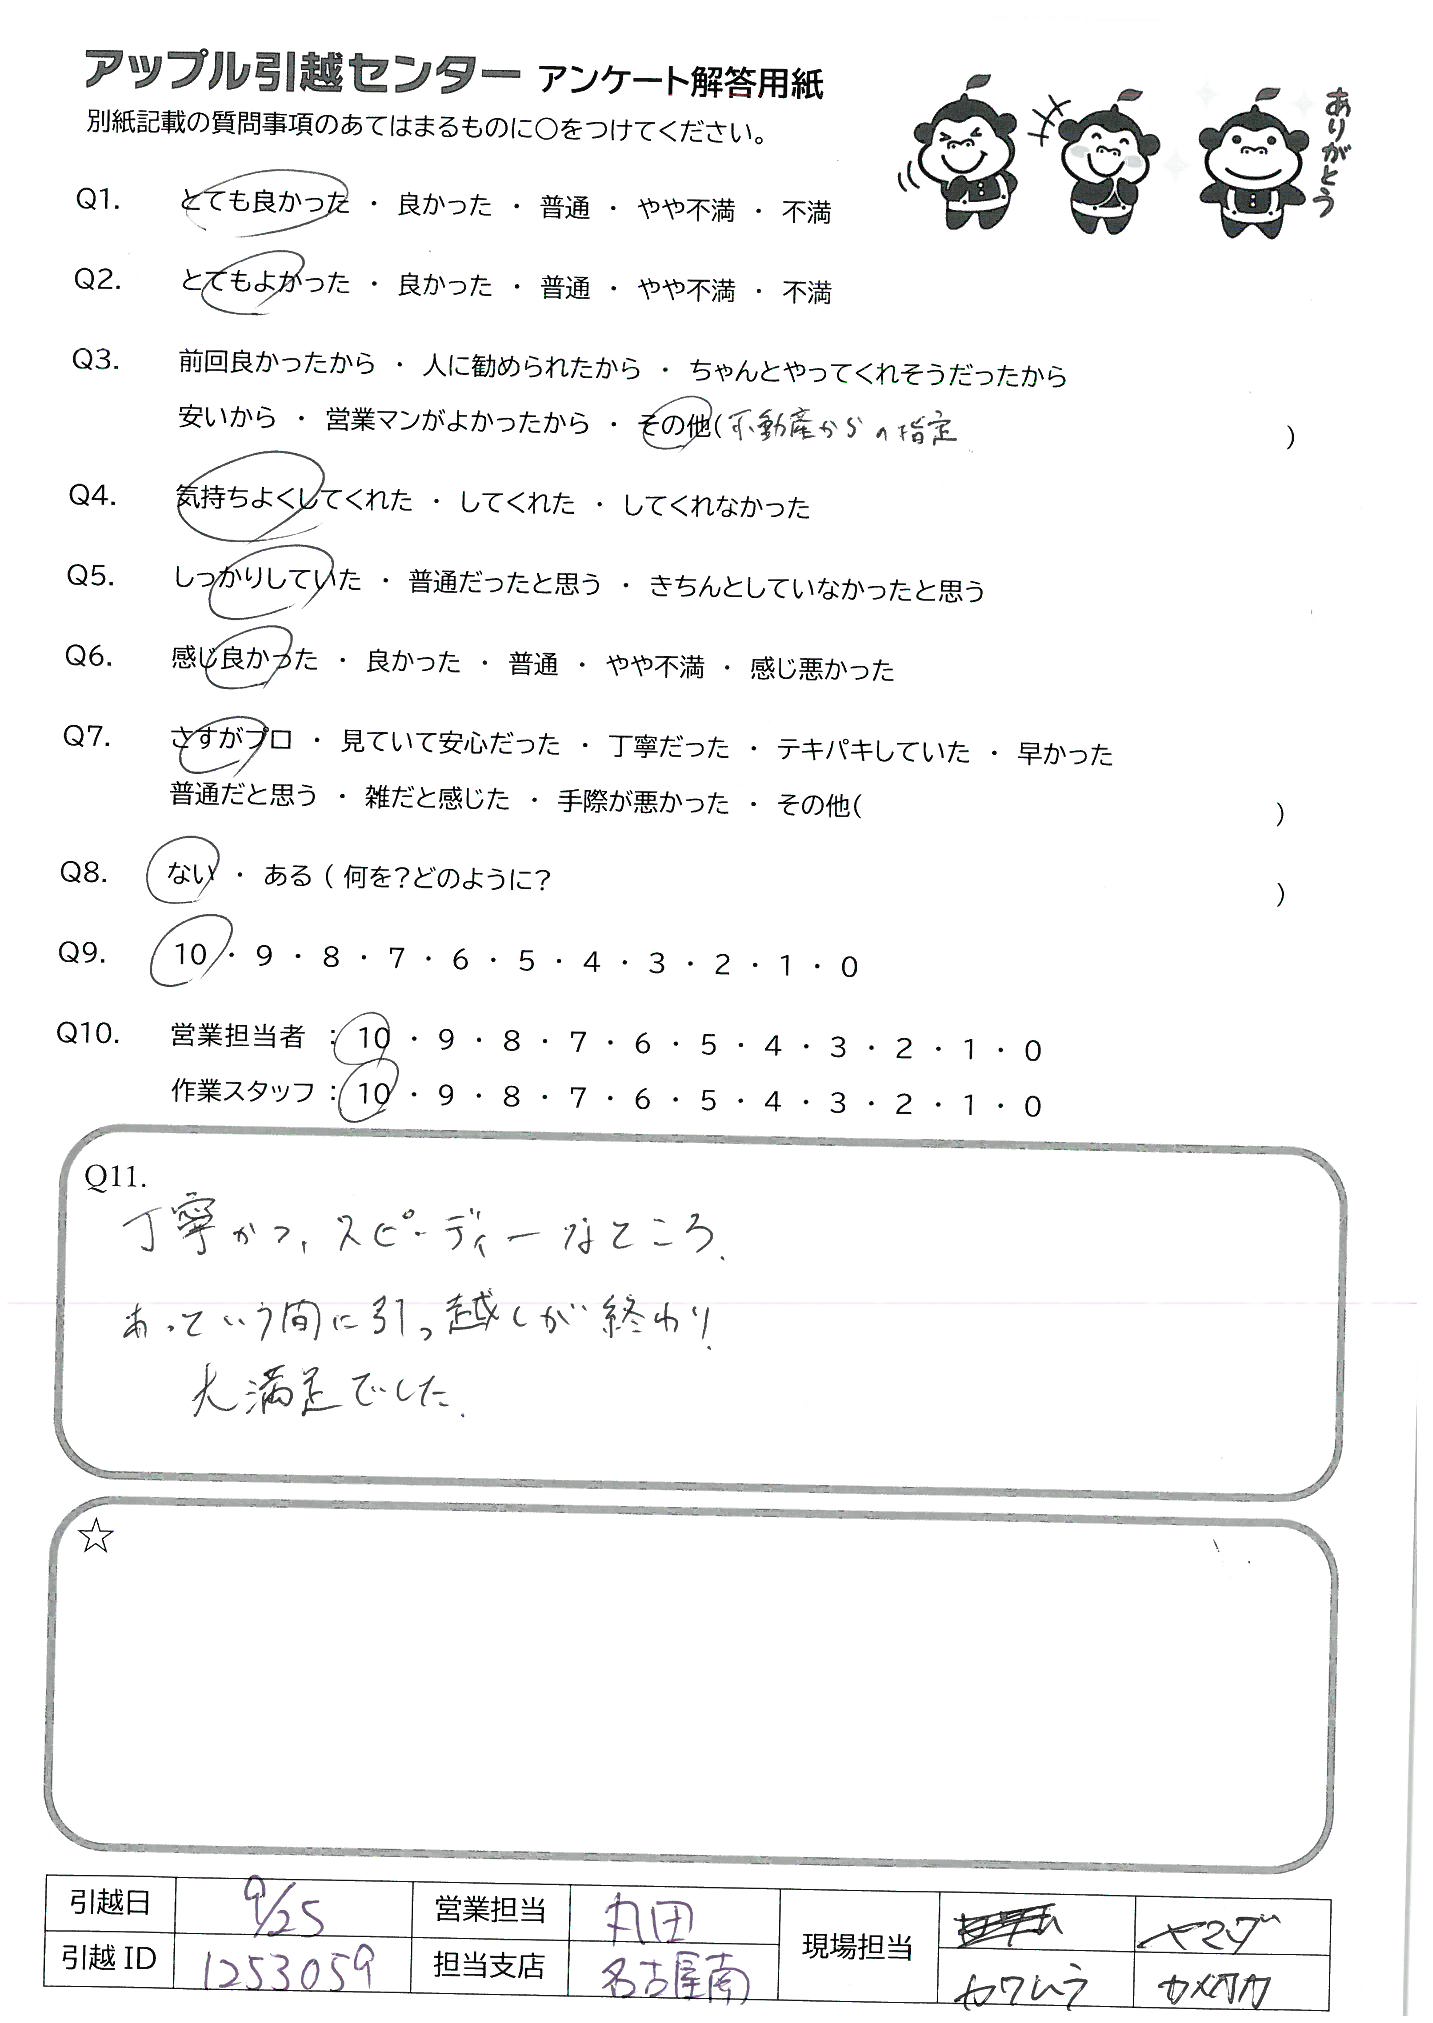 アップル引越センター アンケート解答用紙
別紙記載の質問事項のあてはまるものに〇をつけてください。
ありがとう
Q1. とても良かった ・ 良かった ・ 普通 ・ やや不満 ・ 不満
Q2. とてもよかった ・ 良かった ・ 普通 ・ やや不満 ・ 不満
Q3. 前回良かったから ・ 人に勧められたから ・ ちゃんとやってくれそうだったから
安いから ・ 営業マンがよかったから ・ その他(不動産からの指定 )
Q4. 気持ちよくしてくれた ・ してくれた ・ してくれなかった
Q5. しっかりしていた ・ 普通だったと思う ・ きちんとしていなかったと思う
Q6. 感じ良かった ・ 良かった ・ 普通 ・ やや不満 ・ 感じ悪かった
Q7. さすがプロ ・ 見ていて安心だった ・ 丁寧だった ・ テキパキしていた ・ 早かった
普通だと思う ・ 雑だと感じた ・ 手際が悪かった ・ その他( )
Q8. ない ・ ある ( 何を?どのように? )
Q9. 10 ・ 9 ・ 8 ・ 7 ・ 6 ・ 5 ・ 4 ・ 3 ・ 2 ・ 1 ・ 0
Q10. 営業担当者 : 10 ・ 9 ・ 8 ・ 7 ・ 6 ・ 5 ・ 4 ・ 3 ・ 2 ・ 1 ・ 0
作業スタッフ : 10 ・ 9 ・ 8 ・ 7 ・ 6 ・ 5 ・ 4 ・ 3 ・ 2 ・ 1 ・ 0
Q11.
丁寧かつ、スピーディーなところ。
あっという間に引っ越しが終わり、
大満足でした。
☆
引越日 9/25 営業担当 丸田 現場担当 ヤマダ
引越 ID 1253059 担当支店 名古屋南 カワムラ カメオカ